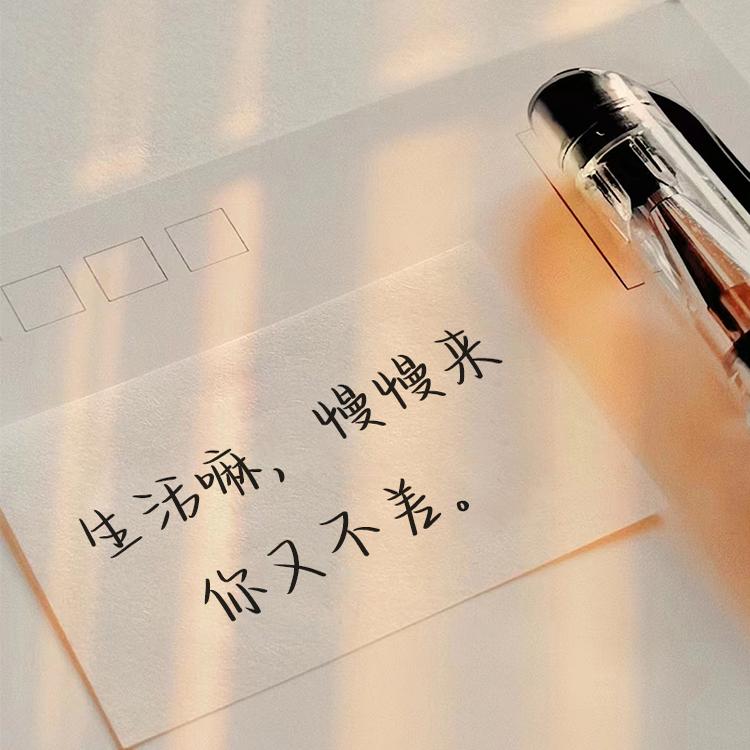 生活嘛，慢慢来
你又不差。